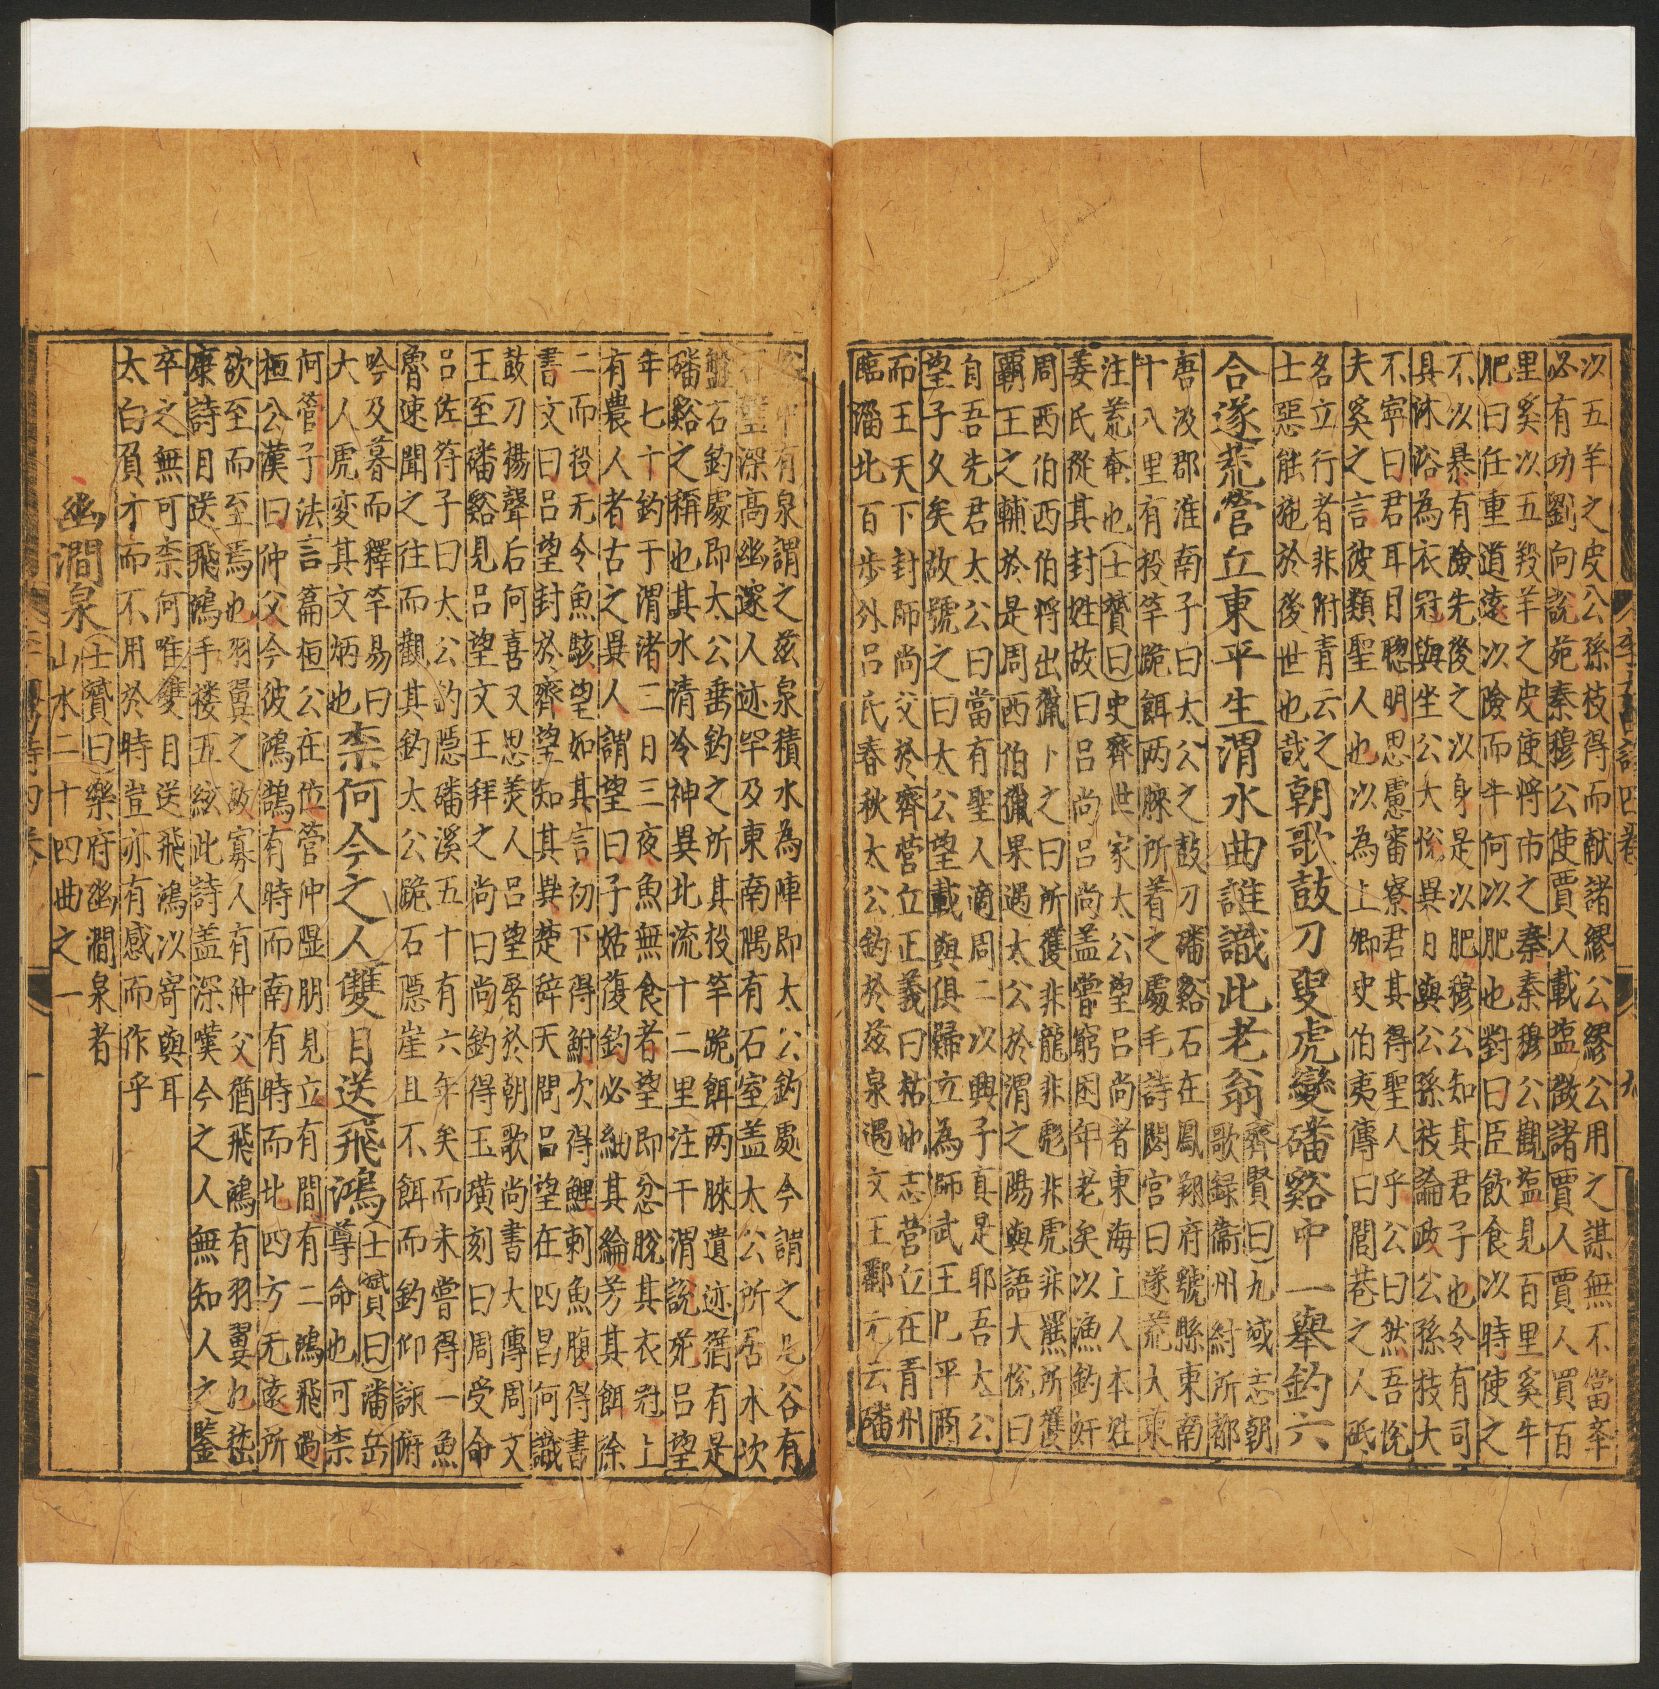 以五羊之皮公孫枝得而献諸繆公繆公用之謀無不當牽
必有功劉向說苑秦穆公使賈人載塩徵諸賈人賈人買百
里奚以五羖羊之皮使將市之秦秦穆公觀塩見百里奚牛
肥曰任重道遠以險而牛何以肥也對曰臣飲食以時使之
不以暴有險先後之以身是以肥穆公知其君子也令有司
具沐浴為衣冠與坐公大悅異日與公孫枝論政公孫枝大
不寧曰君耳目聦明思慮審寮君其得聖人乎公曰然吾悅
夫奚之言彼類聖人也以為上卿史伯夷傳曰閭巷之人砥
名立行者非附青云之
士惡能施於後世也哉
朝歌鼓刀叟虎變磻谿中一舉釣六
合遂荒營丘東平生渭水曲誰識此老翁
齊賢曰九域志朝
歌録衞州紂所都
唐汲郡淮南子曰太公之鼓刀磻谿石在鳳翔府號縣東南
十八里有投竿跪餌两膝所着之處毛詩閟宮曰遂荒大東
注荒奄也士贇曰史齊世家太公望吕尚者東海上人本姓
姜氏從其封姓故曰吕尚吕尚盖嘗窮困年老矣以漁釣奸
周西伯西伯将出獵卜之曰所獲非龍非彪非虎非羆所獲
霸王之輔於是周西伯獵果遇太公於渭之陽與語大悅曰
自吾先君太公曰當有聖人適周二以興子真是耶吾太公
望子久矣故號之曰太公望載與俱歸立為師武王巳平商
而王天下封師尚父於齊營立正義曰枯地志营丘在青州
臨淄北百步外吕氏春秋太公釣於兹泉遇文王酈元云磻
谿中有泉謂之兹泉積水為陣即太公釣處今謂之凡谷有
石壁深高幽邃人迹罕及東南隅有石室盖太公所居水次
盤石釣處即太公垂釣之所其投竿跪餌两膝遺迹猶有是
磻谿之稱也其水清冷神異北流十二里注于渭說苑吕望
年七十釣于渭渚三日三夜魚無食者望即忿脫其衣冠上
有農人者古之異人謂望曰子姑復釣必紬其綸芳其餌徐
二而投无令魚駭望如其言初下得鮒次得鯉刺魚腹得書
書文曰吕望封於齊望知其異楚辞天問吕望在四昌何識
鼓刀揚聲后何喜又思羙人吕望屠於朝歌尚書大傳周文
王至磻谿見吕望文王拜之尚曰尚釣得玉璜刻曰周受命
吕佐符子曰太公釣隠磻溪五十有六年矣而未嘗得一魚
魯連聞之往而觀其釣太公跪石隠崖且不餌而釣仰詠俯
吟及暮而釋竿易曰
大人虎变其文炳也
柰何今之人雙目送飛鴻
士贇曰潘岳
尊命也可柰
何管子法言篇桓公在位管仲隰朋見立有間有二鴻飛過
桓公漢曰仲父今彼鴻鵠有時而南有時而北四方无遠所
欲至而至焉也羽翼之故寡人有仲父猶飛鴻有羽翼也嵇
康詩目送飛鴻手揮五絃此詩盖深嘆今之人無知人之鑒
卒之無可柰何唯雙目送飛鴻以寄與耳
太白負才而不用於時豈亦有感而作乎
幽澗泉
士贇曰樂府幽澗泉者
山水二十四曲之一